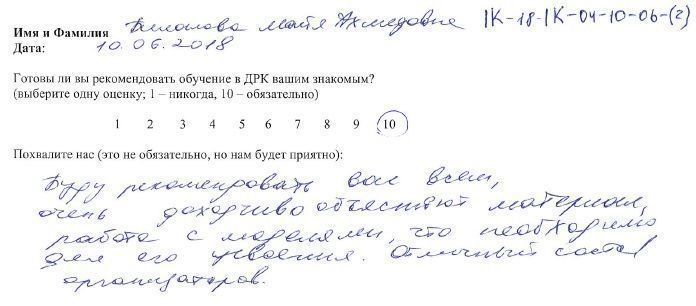 Имя и Фамилия Майя Ахмедовна 1К-18-1К-04-10-06-(2)
Дата: 10.06.2018
Готовы ли вы рекомендовать обучение в ДРК вашим знакомым?
(выберите одну оценку; 1 – никогда, 10 – обязательно)
1 2 3 4 5 6 7 8 9 10
Похвалите нас (это не обязательно, но нам будет приятно):
Буду рекомендовать вас всем,
очень доходчиво объясняют материал,
работа с моделями, что необходимо
для его усвоения. Отличный состав
организаторов.